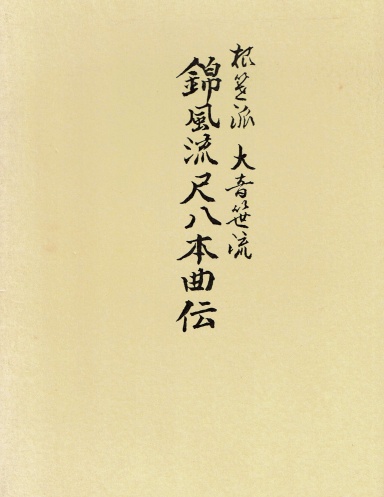 根笹派 大音笹流
錦風流尺八本曲伝